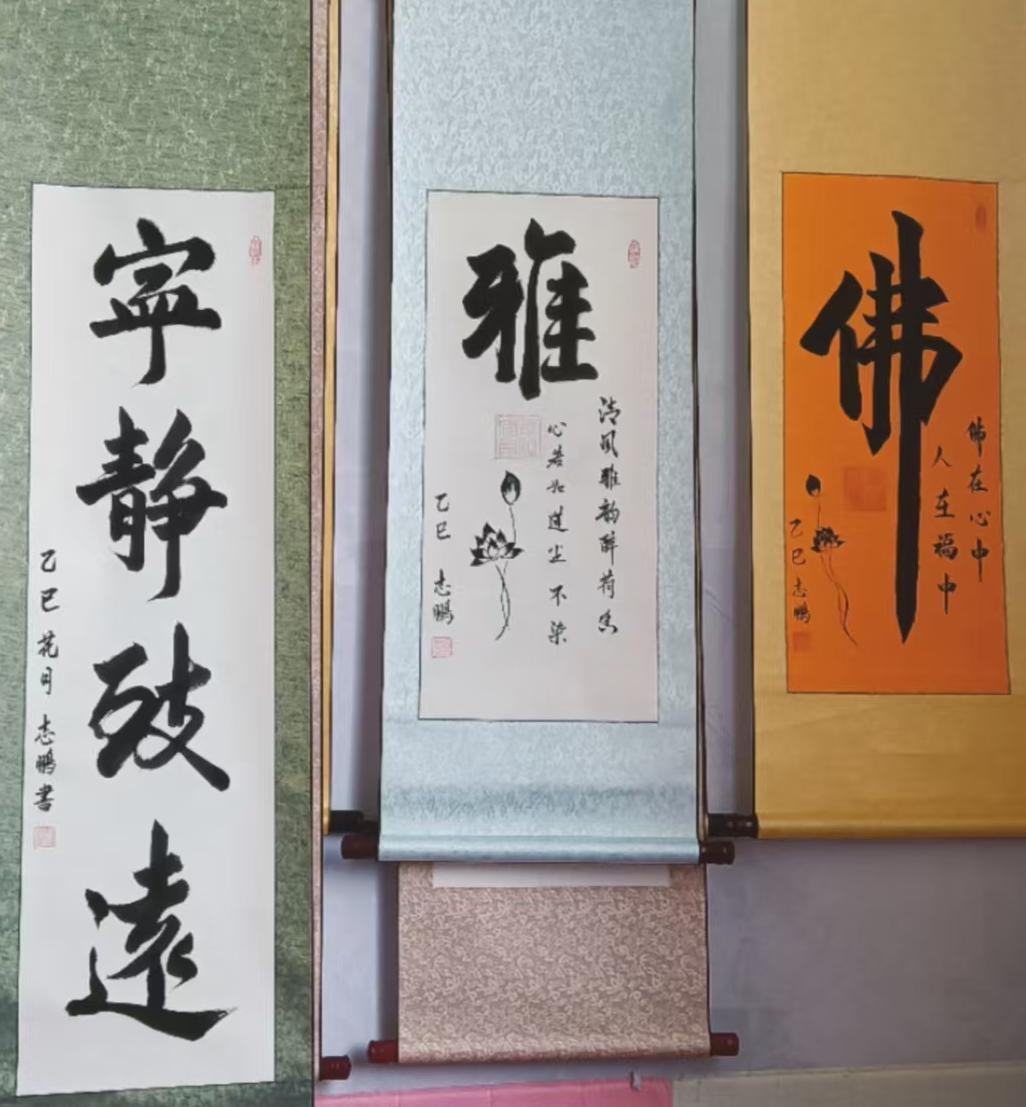 寧靜致遠
乙巳花月志鵬書
雅
清風雅韵醉荷香
心若如蓮尘不染
乙巳志鵬
佛
佛在心中
人在福中
乙巳志鵬